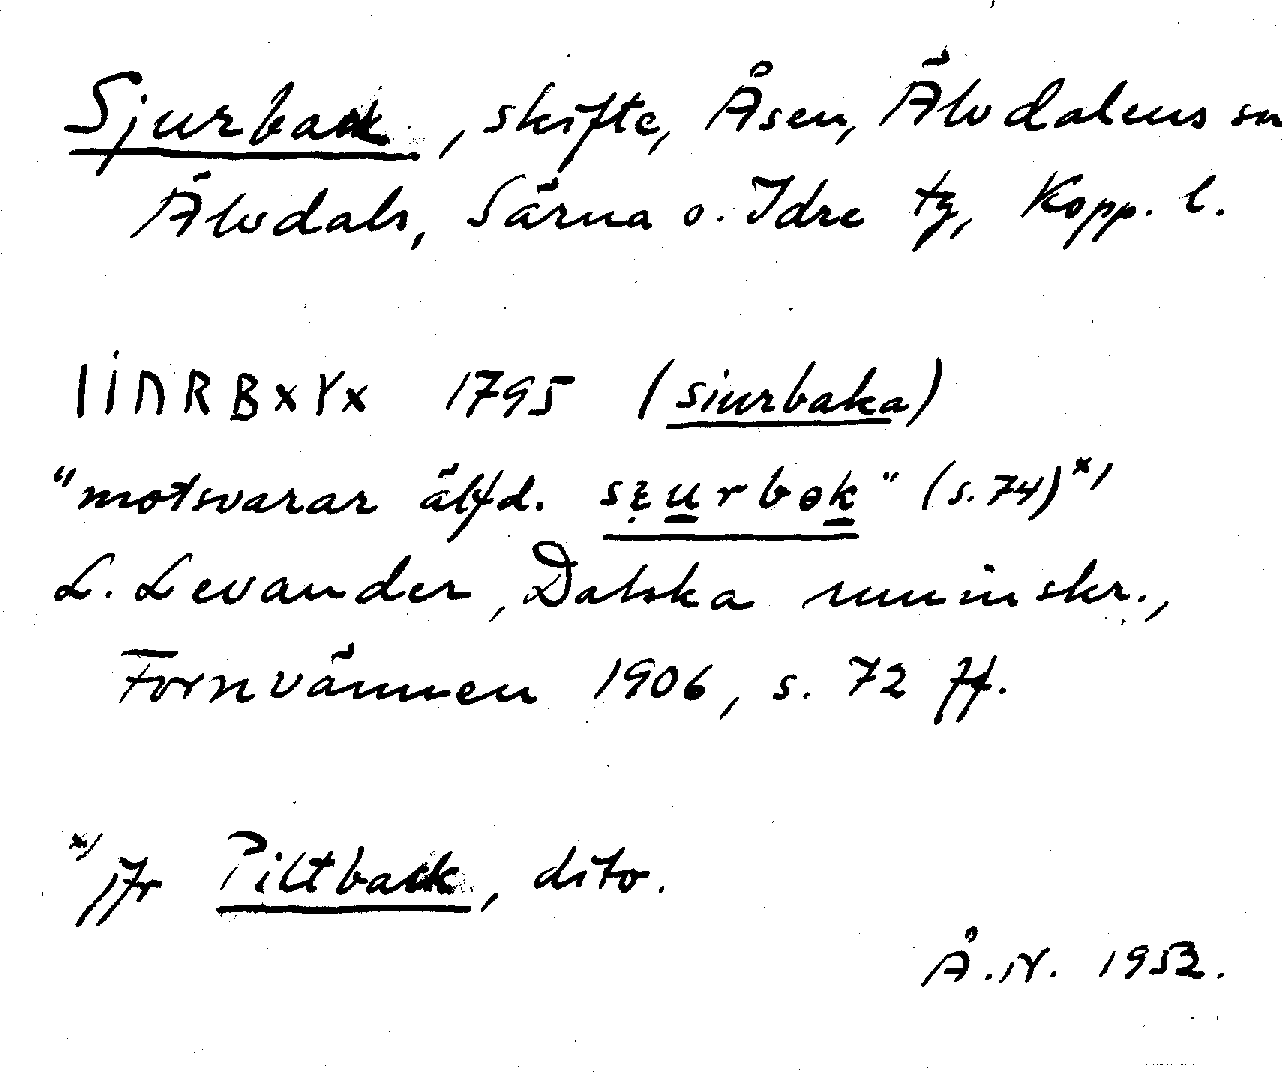 Sjurback, skifte, Åsen, Älvdalens sn
Älvdals, Särna o. Idre tg, Kopp. l.
ᛁİᚢRBxᛉx 1795 (siurbaka)
"motsvarar älfd. sɩ̣urbɵk" (s. 74)x)
L. Levander, Dalska runinskr.,
Fornvännen 1906, s. 72 ff.
x) jfr Piltback, dito.
Å. N. 1952.